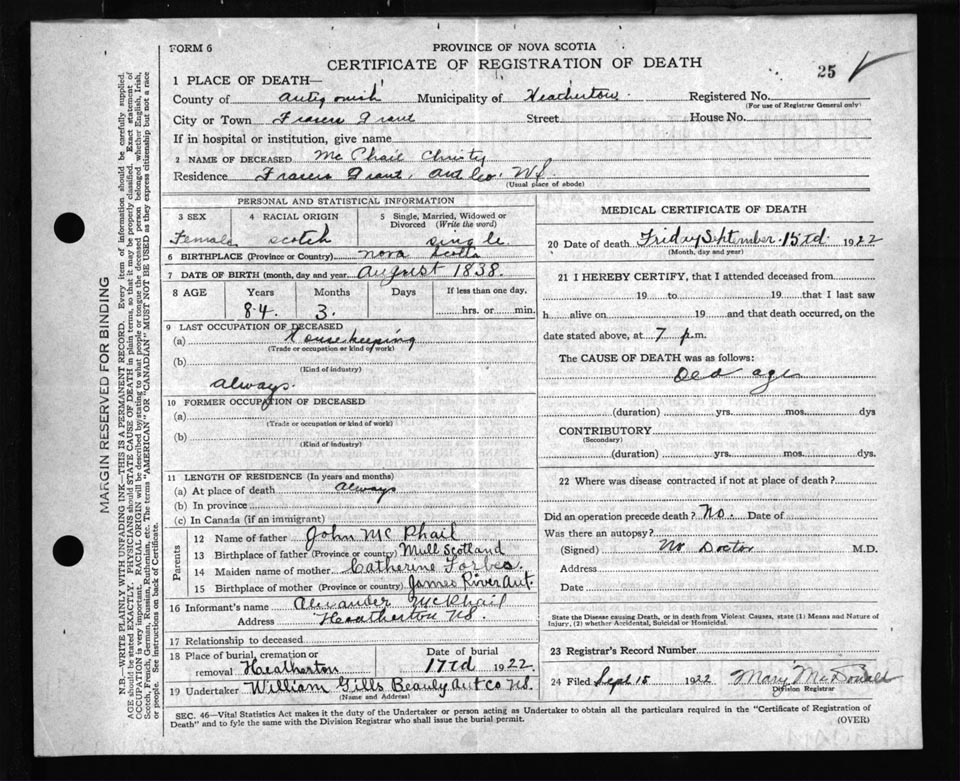 FORM 6
PROVINCE OF NOVA SCOTIA
CERTIFICATE OF REGISTRATION OF DEATH
25
1 PLACE OF DEATH—
County of Antigonish Municipality of Heatherton Registered No.
(For use of Registrar General only)
City or Town Frasers Grant Street House No.
If in hospital or institution, give name
2 NAME OF DECEASED McPhail Christy
Residence Frasers Grant, Ant Co. NS.
(Usual place of abode)
PERSONAL AND STATISTICAL INFORMATION
3 SEX 4 RACIAL ORIGIN 5 Single, Married, Widowed or Divorced (Write the word)
Female scotch single
6 BIRTHPLACE (Province or Country) Nova Scotia
7 DATE OF BIRTH (month, day and year) August 1838.
8 AGE Years Months Days If less than one day,
84 3. hrs. or min.
9 LAST OCCUPATION OF DECEASED
(a) Housekeeping
(Trade or occupation or kind of work)
(b)
(Kind of industry)
always.
10 FORMER OCCUPATION OF DECEASED
(a)
(Trade or occupation or kind of work)
(b)
(Kind of industry)
11 LENGTH OF RESIDENCE (In years and months)
(a) At place of death always
(b) In province
(c) In Canada (if an immigrant)
Parents
12 Name of father John McPhail
13 Birthplace of father (Province or country) Mull Scotland
14 Maiden name of mother Catherine Forbes.
15 Birthplace of mother (Province or country) James River Ant.
16 Informant's name Alexander McPhail
Address Heatherton NS.
17 Relationship to deceased
18 Place of burial, cremation or removal Heatherton Date of burial 17td 1922.
19 Undertaker William Gills Beauly Ant Co NS.
(Name and Address)
MEDICAL CERTIFICATE OF DEATH
20 Date of death Friday September 15td 1922
(Month, day and year)
21 I HEREBY CERTIFY, that I attended deceased from
19 to 19 that I last saw
h alive on 19 and that death occurred, on the
date stated above, at 7 p.m.
The CAUSE OF DEATH was as follows:
Old age
(duration) yrs. mos. dys
CONTRIBUTORY
(Secondary)
(duration) yrs. mos. dys.
22 Where was disease contracted if not at place of death?
Did an operation precede death? No. Date of
Was there an autopsy?
(Signed) No Doctor M.D.
Address
Date
State the Disease causing Death, or in death from Violent Causes, state (1) Means and Nature of
Injury, (2) whether Accidental, Suicidal or Homicidal.
23 Registrar's Record Number
24 Filed Sept 15 1922 Mary McDonald
Division Registrar
SEC. 46—Vital Statistics Act makes it the duty of the Undertaker or person acting as Undertaker to obtain all the particulars required in the "Certificate of Registration of
Death" and to fyle the same with the Division Registrar who shall issue the burial permit.
(OVER)
MARGIN RESERVED FOR BINDING
N.B.—WRITE PLAINLY WITH UNFADING INK—THIS IS A PERMANENT RECORD. Every item of information should be carefully supplied.
AGE should be stated EXACTLY. PHYSICIANS should STATE CAUSE OF DEATH in plain terms, so that it may be properly classified. Exact statement of
OCCUPATION is very important. RACIAL ORIGIN will be described by stating to what people or tongue the deceased person belonged whether English, Irish,
Scotch, French, German, Russian, Ruthenian, etc. The terms "AMERICAN" OR "CANADIAN" MUST NOT BE USED as they express citizenship but not a race
or people. See instructions on back of Certificate.